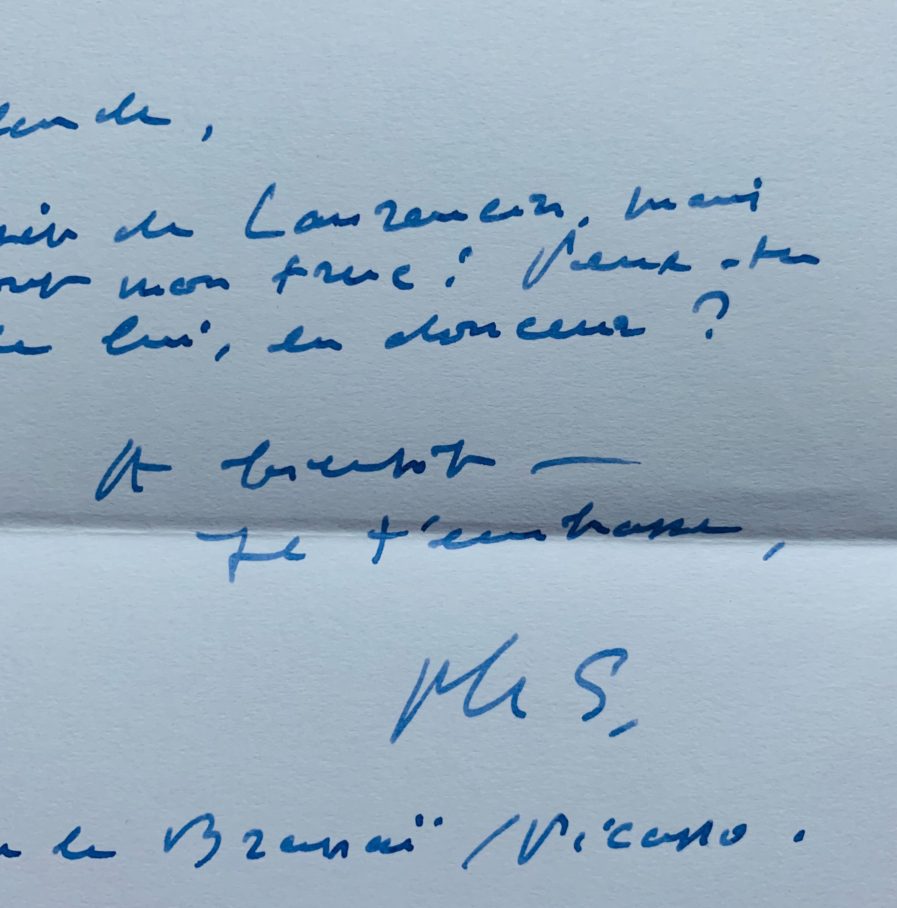 de Laurencin, mais
mon truc ! Peux-tu
lui, en douceur ?
A bientôt —
Je t'embrasse,
Ph S.
le Brassaï / Picasso.